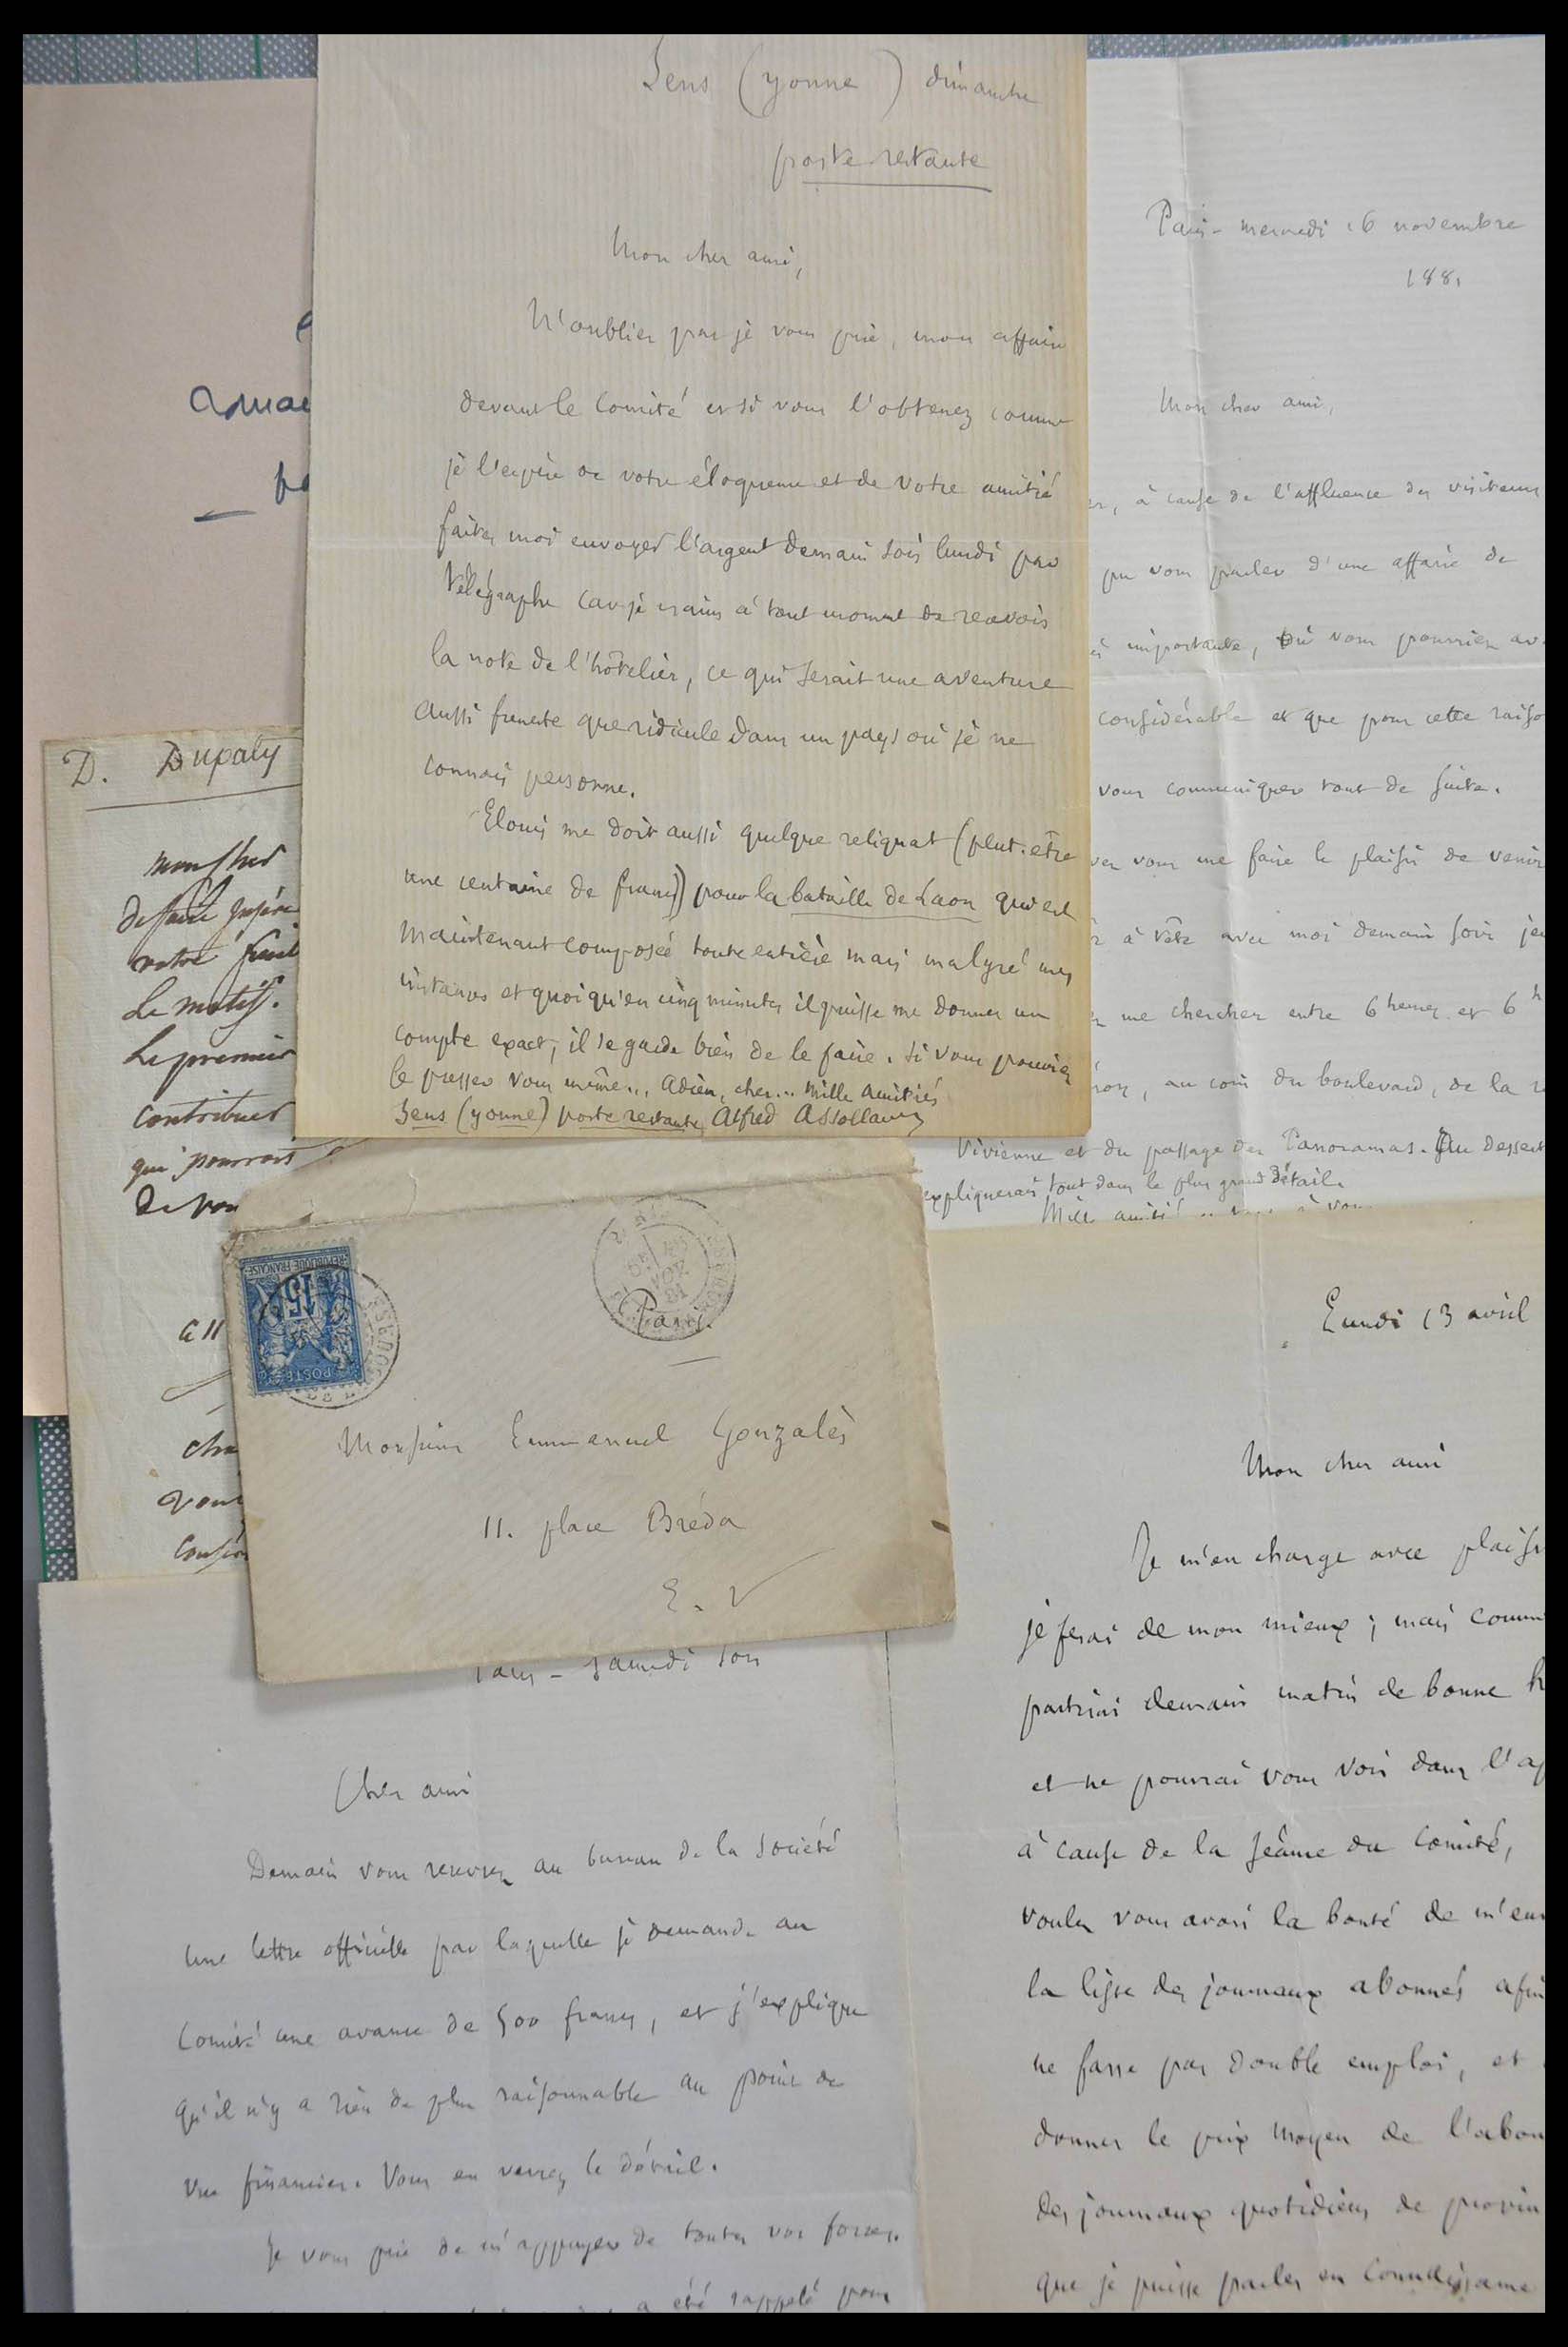 Sens (Yonne) dimanche
poste restante
Mon cher ami,
N'oubliez pas je vous prie, mon affaire
devant le Comité et si vous l'obtenez comme
je l'espère de votre éloquence et de votre amitié
faites moi envoyer l'argent demain soir lundi par
télégraphe car je crains à tout moment de recevoir
la note de l'hôtelier, ce qui serait une aventure
aussi funeste que ridicule dans un pays où je ne
connais personne.
Elouis me doit aussi quelque reliquat (peut-être
une centaine de francs) pour la bataille de Laon qui est
maintenant composée toute entière mais malgré mes
instances et quoiqu'en cinq minutes il puisse me donner un
compte exact, il se garde bien de le faire. Si vous pouviez
le presser vous même... Adieu, cher... mille amitiés
Sens (Yonne) poste restante Alfred Assollant
Paris - mercredi 16 novembre
1881
Mon cher ami,
à cause de l'affluence des visiteurs
pu vous parler d'une affaire de
importante, où vous pourriez av
considérable et que pour cette raiso
vous communiquer tout de suite.
vous me faire le plaisir de venir
à tête avec moi demain soir jeu
me chercher entre 6 heures et 6 h
au coin du boulevard, de la r
Vivienne et du passage des Panoramas. Au dessert
expliquerai tout dans le plus grand détail.
Mille amitiés
D. Dupaty
mon cher
de faire insére
votre feuil
le motif.
Le premier
contribuer
qui pourrait
de vou
all
cha
vous
REPUBLIQUE FRANÇAISE
15
POSTES
PARIS
NOV
81
Paris.
Monsieur Emmanuel Gonzalès
11. place Bréda
E. V
Paris - samedi soir
Cher ami
Demain vous recevrez au bureau de la Société
une lettre officielle par laquelle je demande au
Comité une avance de 500 francs, et j'explique
qu'il n'y a rien de plus raisonnable au point de
vue financier. Vous en verrez le détail.
Je vous prie de m'appuyer de toutes vos forces.
a été rappelé pour
Lundi 13 avril
Mon cher ami
Je m'en charge avec plaisir
je ferai de mon mieux ; mais comme
partirai demain matin de bonne h
et ne pourrai vous voir dans l'ap
à cause de la séance du Comité,
voulez vous avoir la bonté de m'env
la liste des journaux abonnés afin
ne fasse pas double emploi, et
donner le prix moyen de l'abon
des journaux quotidiens de provin
que je puisse parler en connaissance